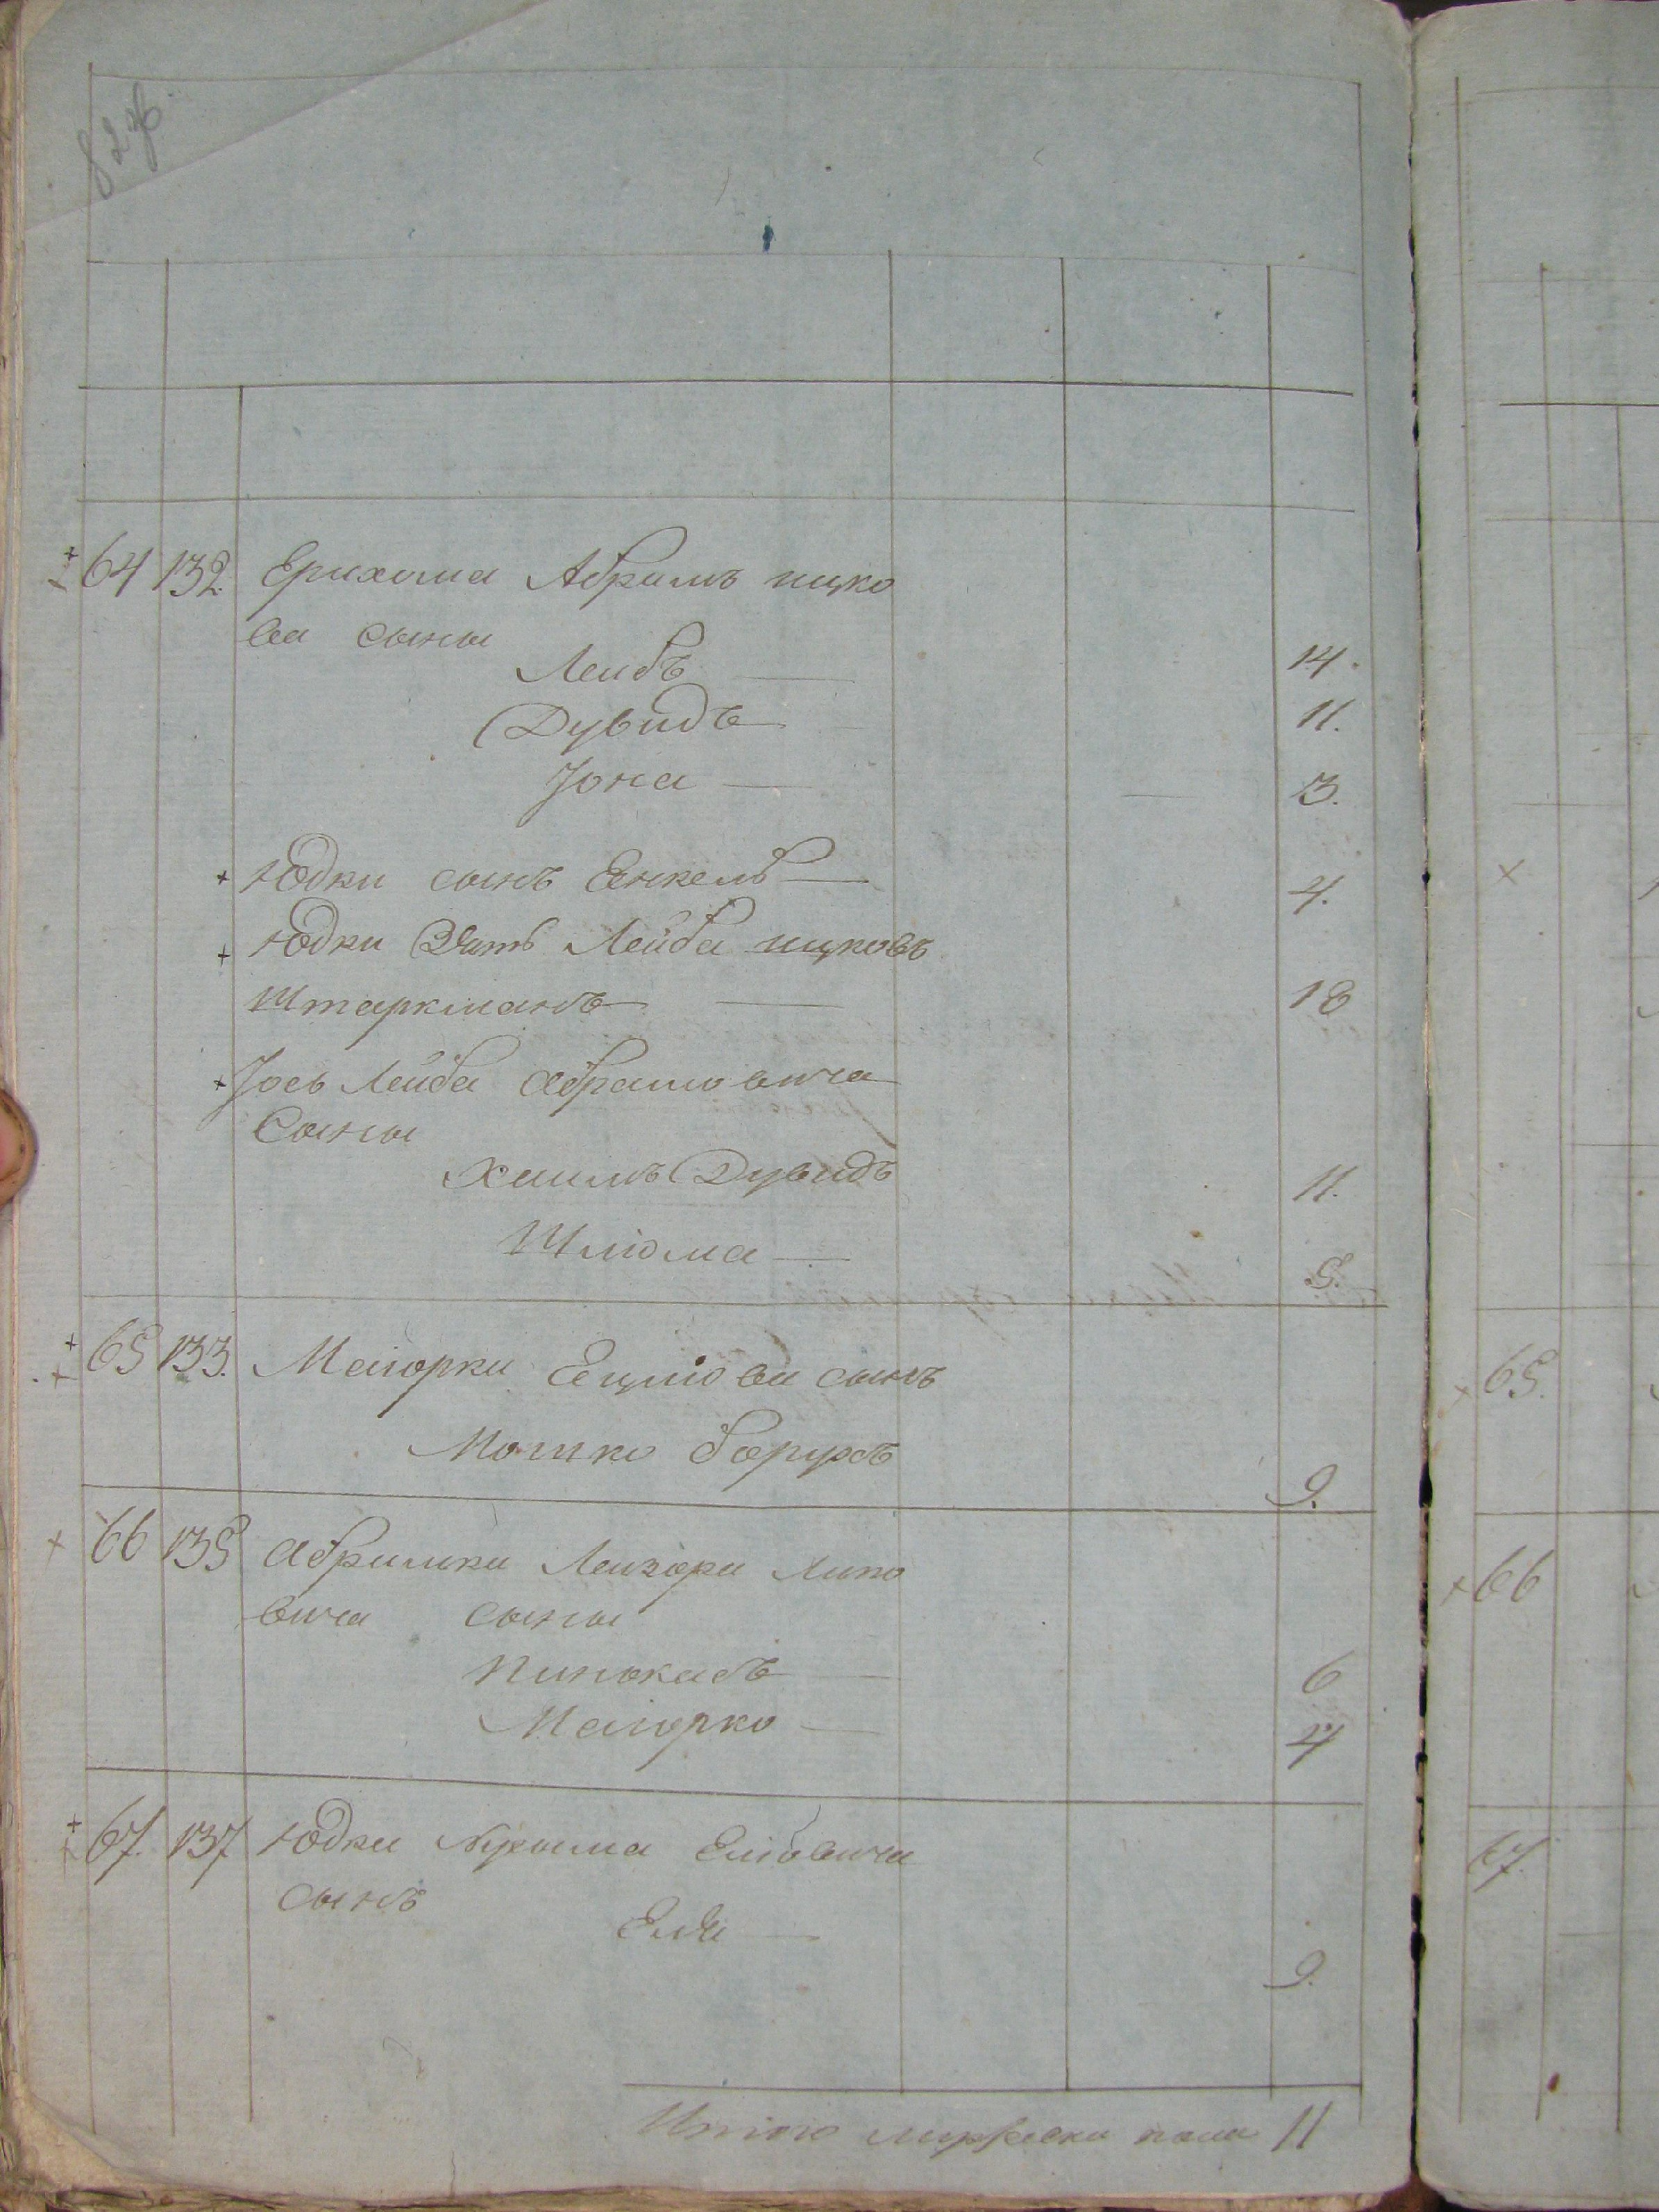 64 132. Ерихома Абрамъ ицко
ва сыны
Леибъ 14.
Дувидъ 11.
Іона 3.
Юдки сынъ Енкель 4.
Юдки Зять Лейба ицковъ
Штаркманъ 18
Іось Лейба абрамовича
Сыны
Хаимъ Дувидъ 11.
Шліома 5.
65 133. Маіорки Ецыіова сынъ
Мошко борухъ 9.
66 135 абрамка Леизора Липо
вича сыны
Пинькасъ 6
Маіорко 4
67. 137 Юдки Еліовича
сынъ
Елія 9.
Итого мужеска пола 11
65.
66
67.